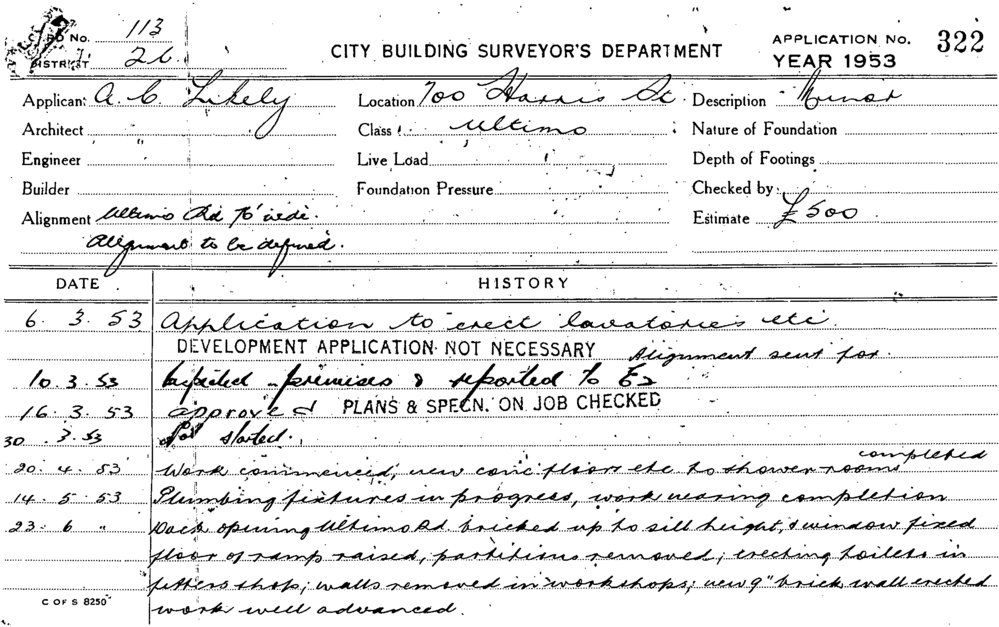 RD No. 113
DISTRICT 26
CITY BUILDING SURVEYOR'S DEPARTMENT
APPLICATION No. 322
YEAR 1953
Applicant A. C. Likely
Location 700 Harris St.
Description Minor
Architect "
Class Ultimo
Nature of Foundation
Engineer
Live Load
Depth of Footings
Builder
Foundation Pressure
Checked by
Alignment Ultimo Rd
Estimate £500
Alignment to be defined.
DATE HISTORY
6. 3. 53 Application to erect lavatories etc.
DEVELOPMENT APPLICATION NOT NECESSARY Alignment sent for.
10. 3. 53 Inspected premises & reported to
16. 3. 53 approved PLANS & SPECN. ON JOB CHECKED
30 . 3. 53 Not started.
20. 4. 53 Work commenced, new conc floors etc to shower rooms completed
14. 5. 53 Plumbing fixtures in progress, work nearing completion
23. 6 " opening Ultimo Rd bricked up to sill height, & window fixed
floor of ramp raised, partitions removed, erecting toilets in
fitters shop; walls removed in workshops; new 9" brick wall erected
work well advanced.
C OF S 8250